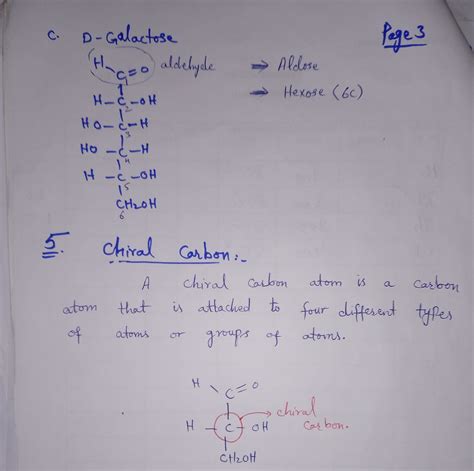 c. D-Galactose Page 3
H
C=O aldehyde → Aldose
1
H-C-OH → Hexose (6C)
2
HO-C-H
3
HO-C-H
4
H-C-OH
5
CH₂OH
6
5. Chiral Carbon:-
A chiral carbon atom is a carbon
atom that is attached to four different types
of atoms or groups of atoms.
H
C=O
H-C-OH → chiral
carbon.
CH₂OH